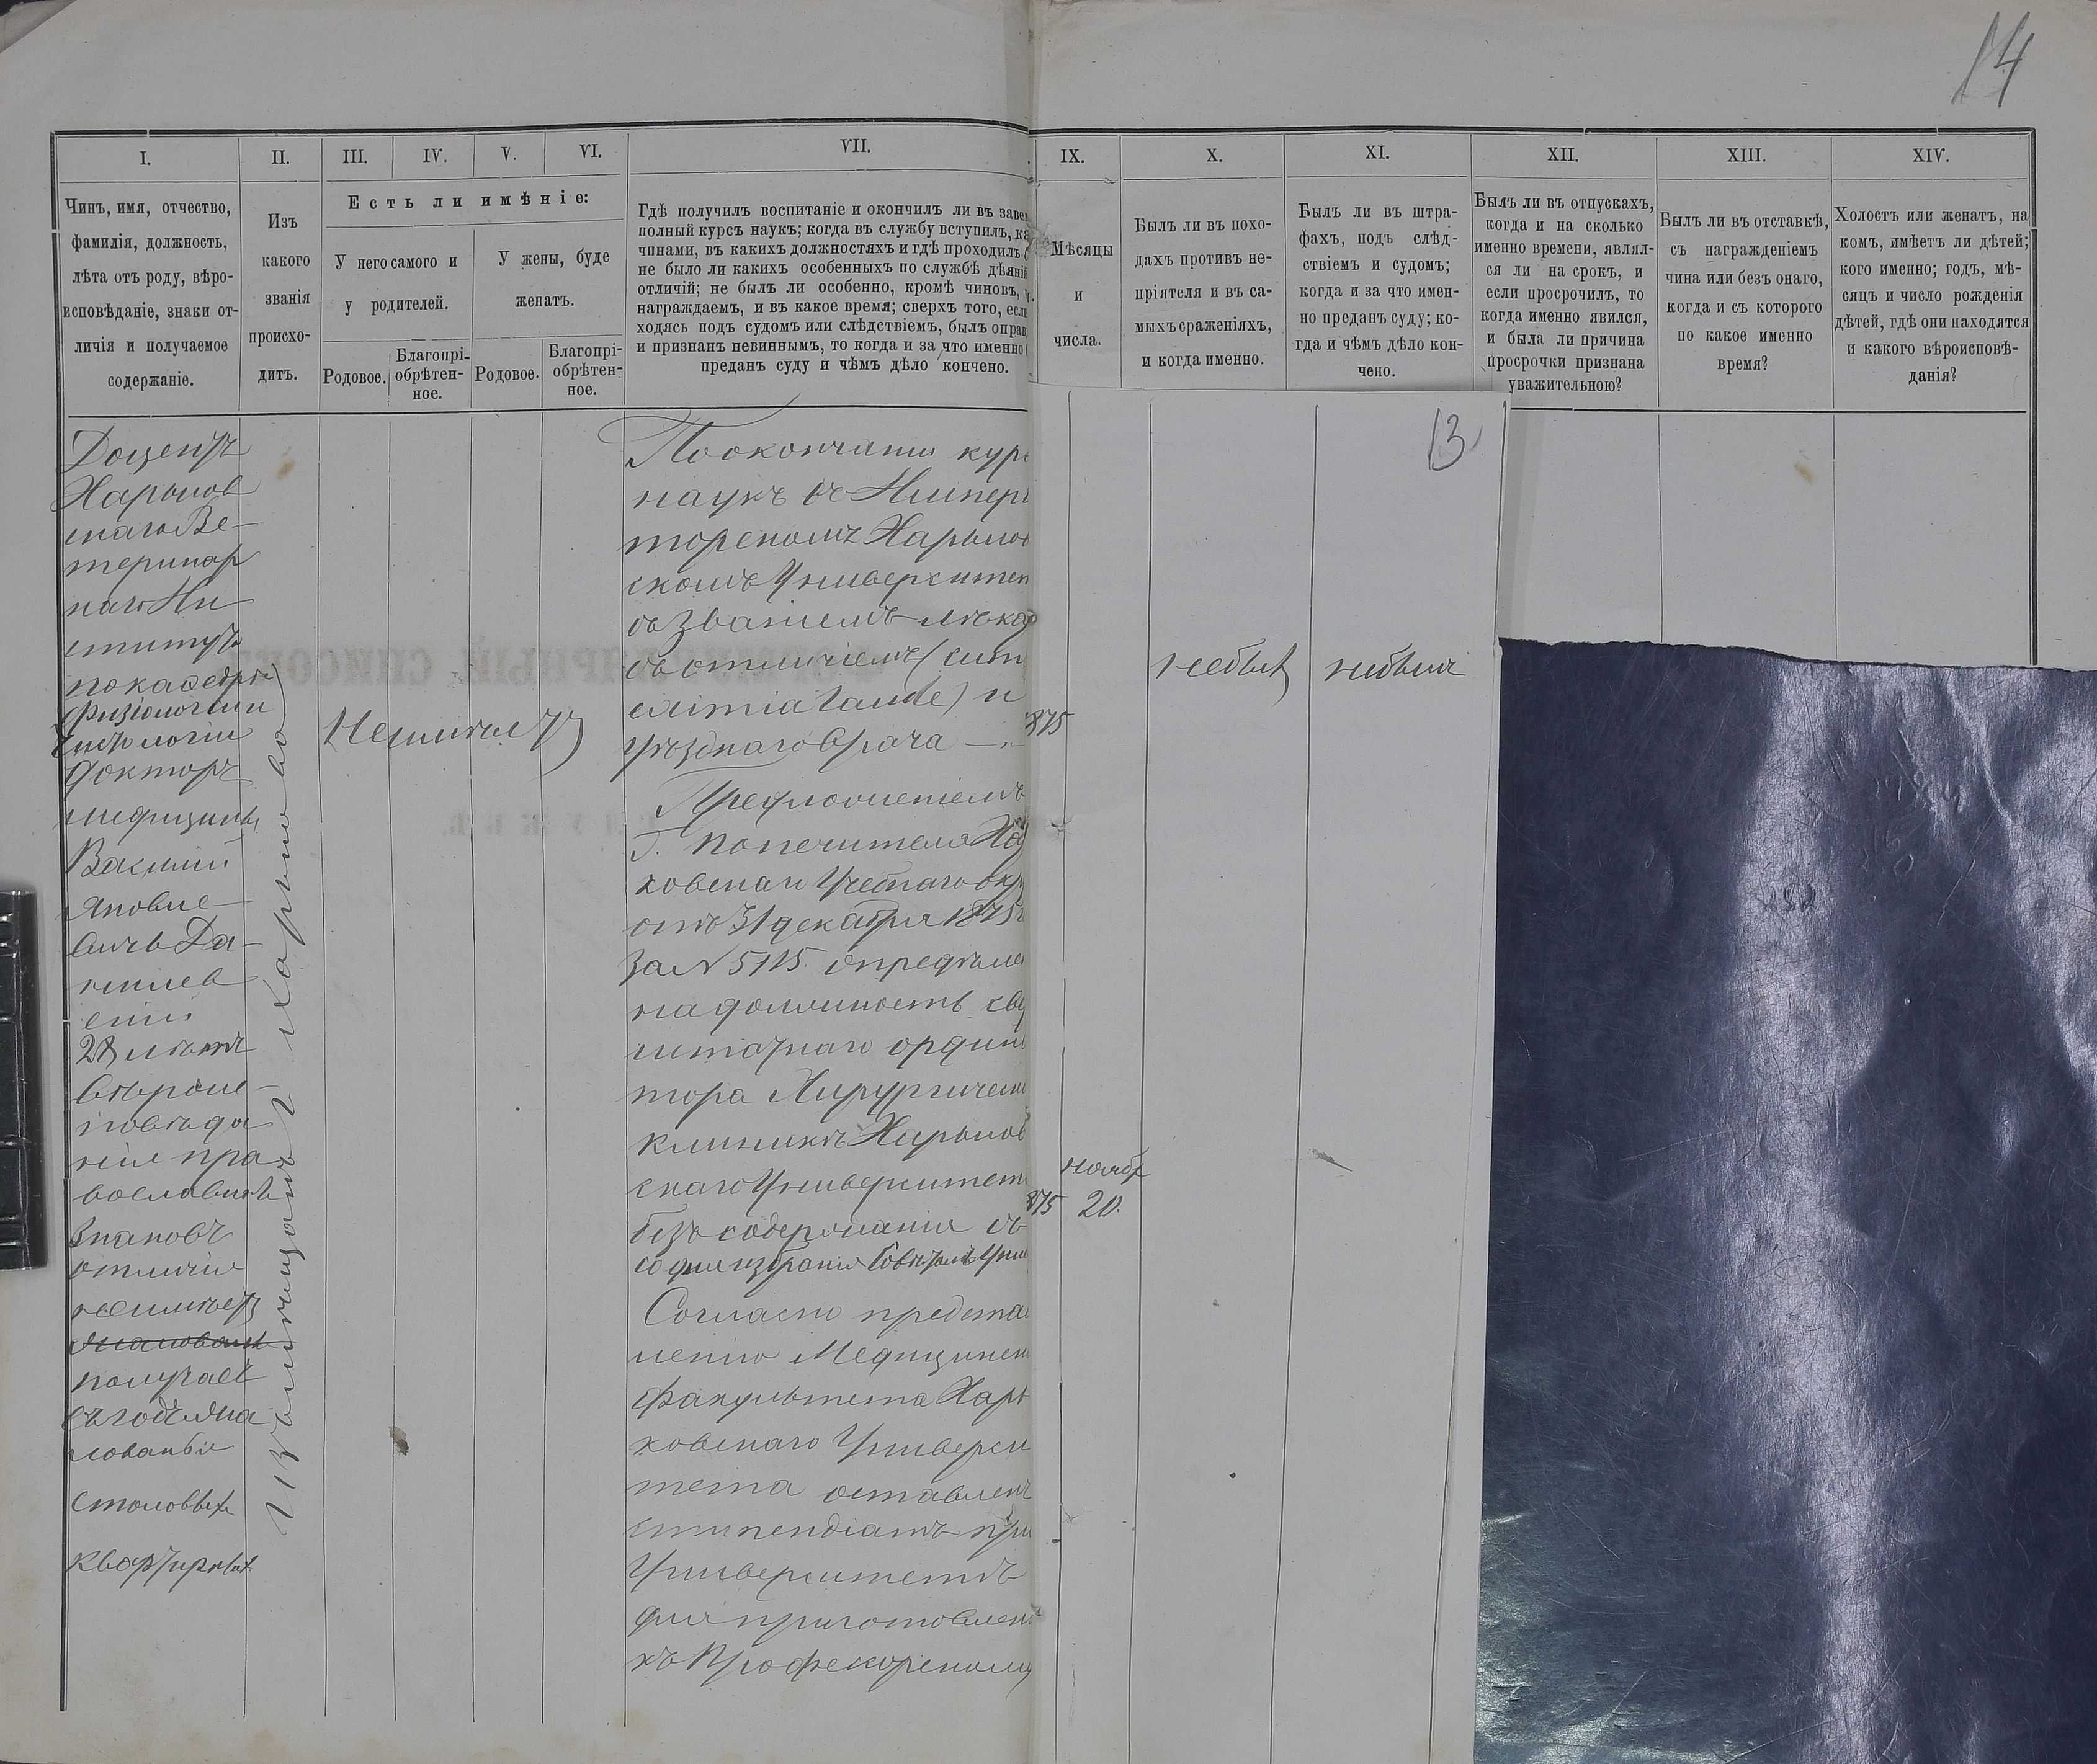 14
I.
II.
III.
IV.
V.
VI.
VII.
IX.
X.
XI.
XII.
XIII.
XIV.
Чинъ, имя, отчество,
фамилія, должность,
лѣта отъ роду, вѣро-
исповѣданіе, знаки от-
личія и получаемое
содержаніе.
Изъ
какого
званія
происхо-
дитъ.
Есть ли имѣніе:
У него самого и
у родителей.
У жены, буде
женатъ.
Родовое.
Благопрі-
обрѣтен-
ное.
Родовое.
Благопрі-
обрѣтен-
ное.
Гдѣ получилъ воспитаніе и окончилъ ли въ заве
полный курсъ наукъ; когда въ службу вступилъ, ка
чинами, въ какихъ должностяхъ и гдѣ проходилъ
не было ли какихъ особенныхъ по службѣ дѣяні
отличій; не былъ ли особенно, кромѣ чиновъ,
награждаемъ, и въ какое время; сверхъ того, если
ходясь подъ судомъ или слѣдствіемъ, былъ оправ
и признанъ невиннымъ, то когда и за что именно
преданъ суду и чѣмъ дѣло кончено.
Мѣсяцы
и
числа.
Былъ ли въ похо-
дахъ противъ не-
пріятеля и въ са-
мыхъ сраженіяхъ,
и когда именно.
Былъ ли въ штра-
фахъ, подъ слѣд-
ствіемъ и судомъ;
когда и за что имен-
но преданъ суду; ко-
гда и чѣмъ дѣло кон-
чено.
Былъ ли въ отпускахъ,
когда и на сколько
именно времени, являл-
ся ли на срокъ, и
если просрочилъ, то
когда именно явился,
и была ли причина
просрочки признана
уважительною?
Былъ ли въ отставкѣ,
съ награжденіемъ
чина или безъ онаго,
когда и съ котораго
по какое именно
время?
Холостъ или женатъ, на
комъ, имѣетъ ли дѣтей;
кого именно; годъ, мѣ-
сяцъ и число рожденія
дѣтей, гдѣ они находятся
и какого вѣроисповѣ-
данія?
Доцентъ
Харьков
скаго Ве-
теринар
наго Ин
ститута
по кафедрѣ
физіологіи
гистологіи
докторъ
медицины
Василій
Яковле-
вичъ Да-
нилев
скій
28 лѣтъ
вѣроис-
повѣда
нія пра
вославнаго
знаковъ
отличія
неимѣетъ
Жалованья
получаетъ
въ годъ жа
лованья
столовыхъ
квартирных
Изъ мѣщанъ г. Харькова
Неимѣетъ
По окончаніи кур
наукъ въ Импера
торскомъ Харьков
скомъ Университе
съ званіемъ лѣка
съ отличіемъ (cum
eximia laude) и
уѣзднаго врача
Предложеніемъ
Г. Попечителя Ха
ковскаго Учебнаго окр
отъ 31 декабря 1875
за № 5115 опредѣле
на должность свер
штатнаго ордина
тора Хирургическ
клиники Харьков
скаго Университет
безъ содержанія съ
со дня избранія Совѣтомъ Унив
Согласно предста
ленію Медицинск
факультета Харь
ковскаго Универси
тета оставленъ
стипендіатъ при
Университетѣ
для приготовлен
къ Профессорскому
875
875
нояб
20.
небылъ
небылъ
13